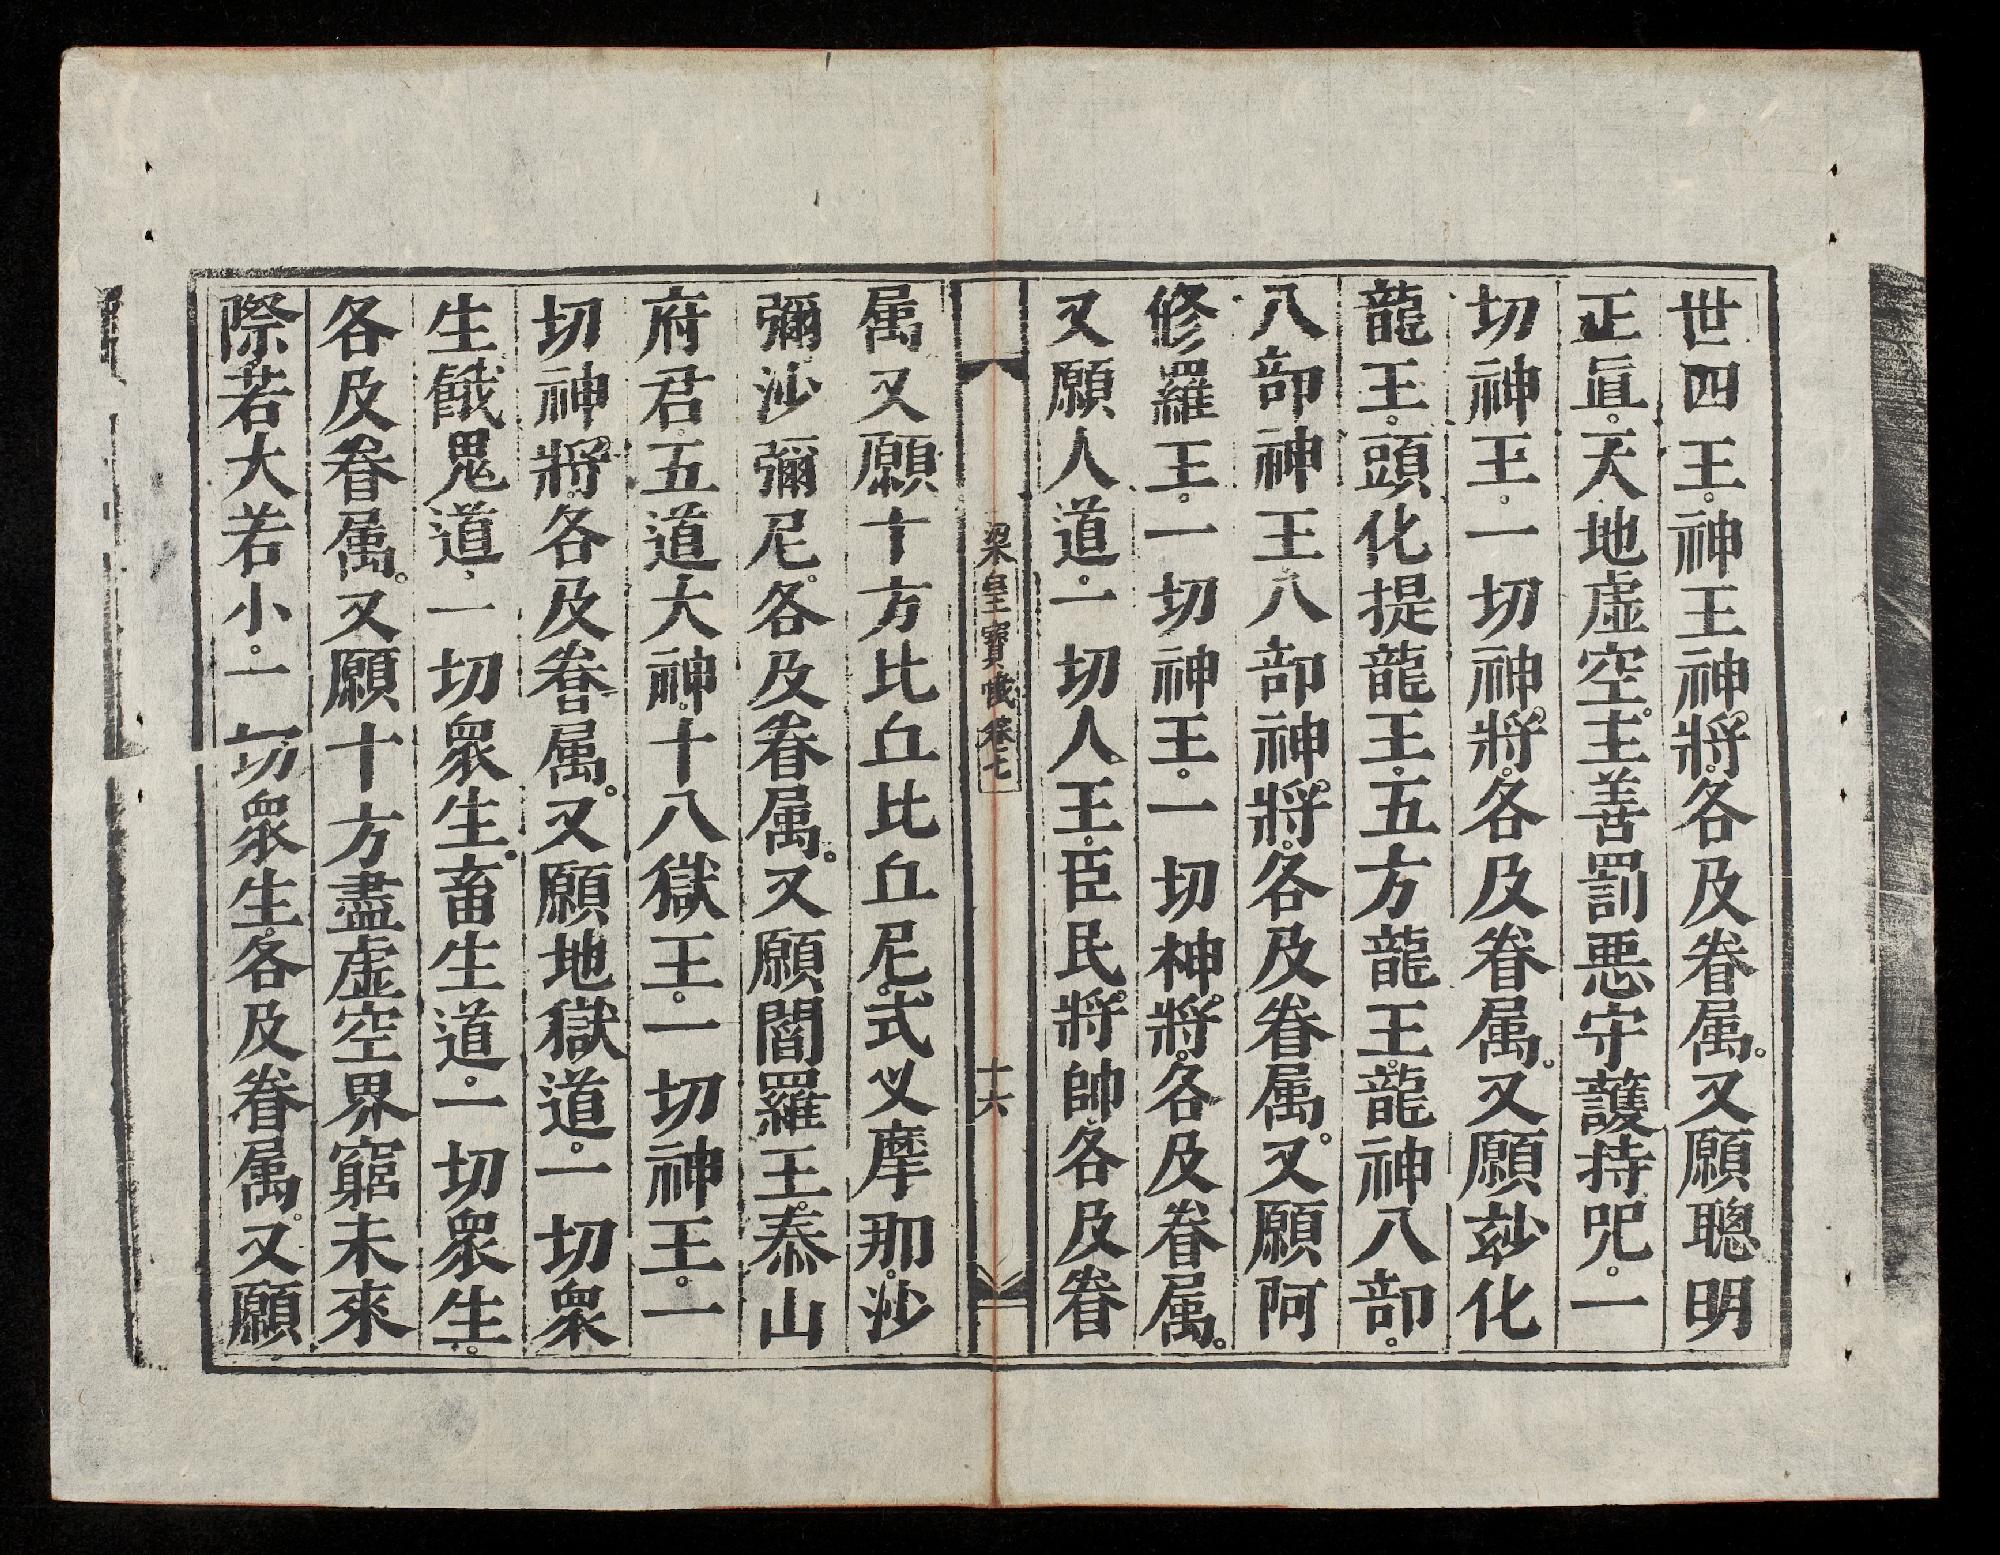 世四王。神王神將。各及眷属。又願聰明
正眞。天地虛空。主善罰惡守護持咒。一
切神王。一切神將。各及眷属。又願玅化
龍王。頭化提龍王。五方龍王。龍神八部。
八部神王。八部神將。各及眷属。又願阿
修羅王。一切神王。一切神將。各及眷属。
又願人道。一切人。王。臣民將帥各及眷
梁皇寶懺卷七
十六
属又願十方比丘比丘尼。式义摩那。沙
彌沙彌尼。各及眷属。又願閻羅王。泰山
府君。五道大神。十八獄王。一切神王。一
切神將。各及眷属。又願地獄道。一切衆
生餓鬼道。一切衆生。畜生道。一切衆生。
各及眷属。又願十方盡虛空界窮未來
際若大若小。一切衆生。各及眷属。又願